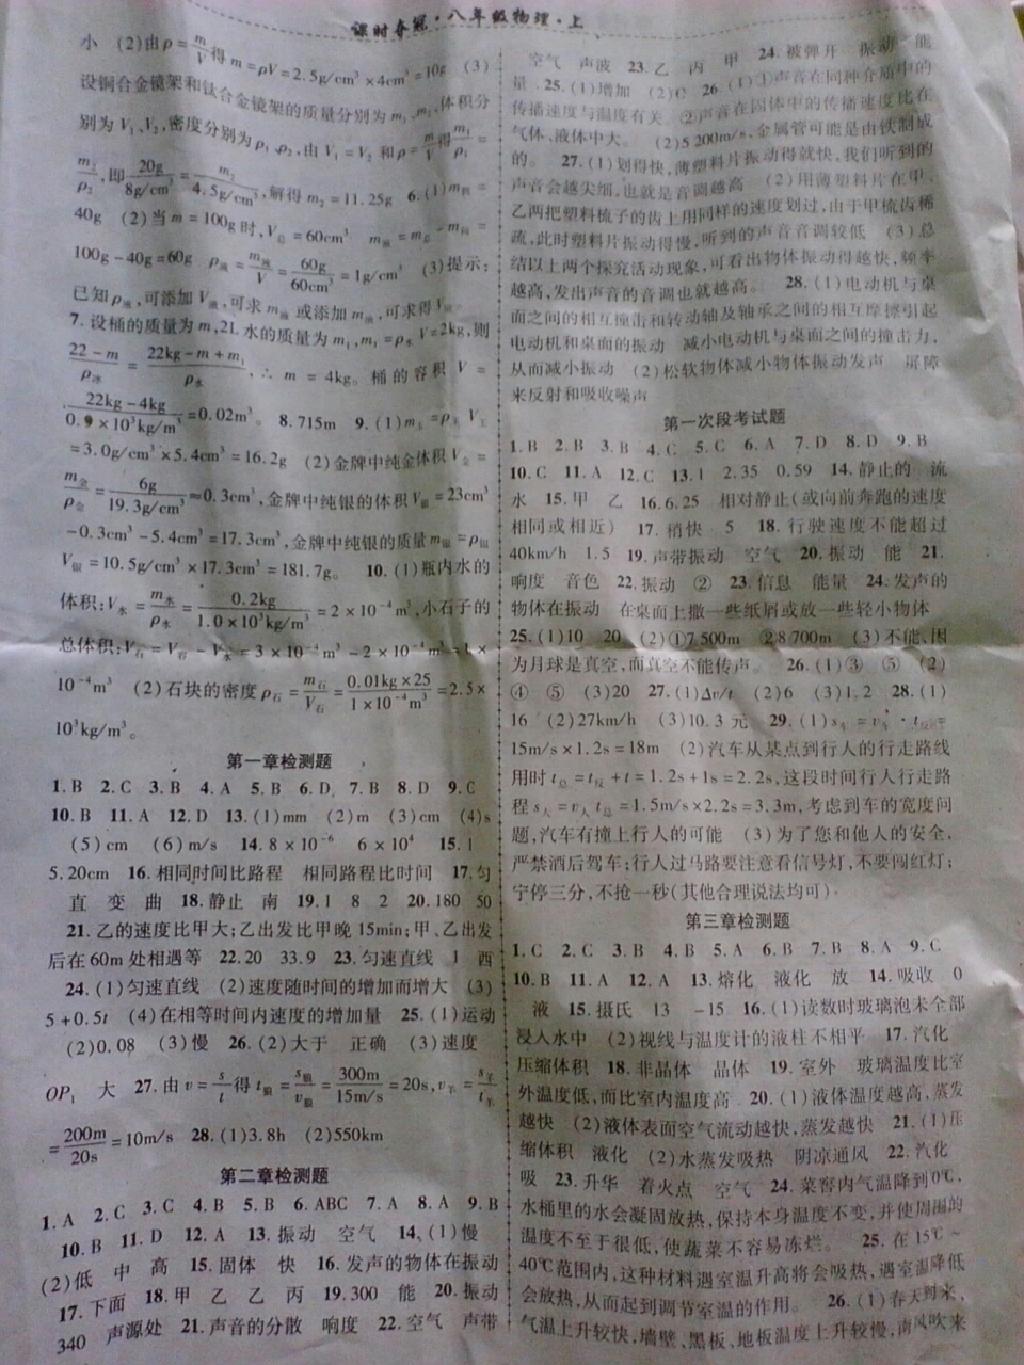 课时夺冠·八年级物理·上
小 (2)由ρ=m/V得m=ρV=2.5g/cm³×4cm³=10g (3)
设铜合金镜架和钛合金镜架的质量分别为m₁、m₂,体积分
别为V₁、V₂,密度分别为ρ₁、ρ₂,由V₁=V₂和ρ=m/V得m₁/ρ₁=
m₂/ρ₂,即20g/8g/cm³=m₂/4.5g/cm³,解得m₂=11.25g 6.(1)
40g (2)当m=100g时,V总=60cm³
100g-40g=60g ρ液=m液/V=60g/60cm³=1g/cm³ (3)提示:
已知ρ液,可添加V液,可求m液或添加m液,可求得V液
7.设桶的质量为m,2L水的质量为m₁,m₁=ρ水V=2kg,则
22-m/ρ冰=22kg-m+m₁/ρ水,∴m=4kg。桶的容积V=
22kg-4kg/0.9×10³kg/m³=0.02m³。 8.715m 9.(1)
=3.0g/cm³×5.4cm³=16.2g (2)金牌中纯金体积V金=
m金/ρ金=6g/19.3g/cm³=0.3cm³,金牌中纯银的体积V银=23cm³
-0.3cm³-5.4cm³=17.3cm³,金牌中纯银的质量m银=ρ银
V银=10.5g/cm³×17.3cm³=181.7g。 10.(1)瓶内水的
体积:V水=m水/ρ水=0.2kg/1.0×10³kg/m³=2×10⁻⁴m³,小石子的
总体积:V石=V容-V水=3×10⁻⁴m³-2×10⁻⁴m³=1×
10⁻⁴m³ (2)石块的密度ρ石=m石/V石=0.01kg×25/1×10⁻⁴m³=2.5×
10³kg/m³。
第一章检测题
1.B 2.C 3.B 4.A 5.B 6.D 7.B 8.D 9.C
10.B 11.A 12.D 13.(1)mm (2)m (3)cm (4)s
(5)cm (6)m/s 14.8×10⁻⁶ 6×10⁴ 15.1
5.20cm 16.相同时间比路程 相同路程比时间 17.匀
直 变 曲 18.静止 南 19.1 8 2 20.180 50
21.乙的速度比甲大;乙出发比甲晚15min;甲、乙出发
后在60m处相遇等 22.20 33.9 23.匀速直线 1 西
24.(1)匀速直线 (2)速度随时间的增加而增大 (3)
5+0.5t (4)在相等时间内速度的增加量 25.(1)运动
(2)0.08 (3)慢 26.(2)大于 正确 (3)速度
OP₁ 大 27.由v=s/t得t狼=s狼/v狼=300m/15m/s=20s,v羊=s羊/t羊
=200m/20s=10m/s 28.(1)3.8h (2)550km
第二章检测题
1.A 2.C 3.C 4.B 5.B 6.ABC 7.A 8.A 9.B
10.B 11.D 12.A 13.振动 空气 14.(1)慢
(2)低 中 高 15.固体 快 16.发声的物体在振动
17.下面 18.甲 乙 乙 丙 19.300 能 20.振动
340 声源处 21.声音的分散 响度 22.空气 声带
空气 声波 23.乙 丙 甲 24.被弹开 振动 能
量 25.(1)增加 (2)C 26.(1)①声音在同种介质中的
传播速度与温度有关 ②声音在固体中的传播速度比在
气体、液体中大。 (2)5 200m/s,金属管可能是由铁制成
的。 27.(1)划得快,薄塑料片振动得就快,我们听到的
声音会越尖细,也就是音调越高 (2)用薄塑料片在甲、
乙两把塑料梳子的齿上用同样的速度划过,由于甲梳齿稀
疏,此时塑料片振动得慢,听到的声音音调较低 (3)总
结以上两个探究活动现象,可看出物体振动得越快,频率
越高,发出声音的音调也就越高。 28.(1)电动机与桌
面之间的相互撞击和转动轴及轴承之间的相互摩擦引起
电动机和桌面的振动 减小电动机与桌面之间的撞击力,
从而减小振动 (2)松软物体减小物体振动发声 屏障
来反射和吸收噪声
第一次段考试题
1.B 2.B 3.B 4.C 5.C 6.A 7.D 8.D 9.B
10.C 11.A 12.C 13.1 2.35 0.59 14.静止的 流
水 15.甲 乙 16.6.25 相对静止(或向前奔跑的速度
相同或相近) 17.梢快 5 18.行驶速度不能超过
40km/h 1.5 19.声带振动 空气 20.振动 能 21.
响度 音色 22.振动 ② 23.信息 能量 24.发声的
物体在振动 在桌面上撒一些纸屑或放一些轻小物体
25.(1)10 20 (2)①7 500m ②8 700m (3)不能,因
为月球是真空,而真空不能传声。 26.(1)③ ⑤ (2)
④ ⑤ (3)20 27.(1)Δv/t (2)6 (3)1.2 28.(1)
16 (2)27km/h (3)10.3元 29.(1)s车=v车·t反应=
15m/s×1.2s=18m (2)汽车从某点到行人的行走路线
用时t总=t反+t=1.2s+1s=2.2s,这段时间行人行走路
程s人=v人t总=1.5m/s×2.2s=3.3m,考虑到车的宽度问
题,汽车有撞上行人的可能 (3)为了您和他人的安全,
严禁酒后驾车;行人过马路要注意看信号灯,不要闯红灯;
宁停三分,不抢一秒(其他合理说法均可)
第三章检测题
1.C 2.C 3.B 4.B 5.A 6.B 7.B 8.A 9.C
10.B 11.A 12.A 13.熔化 液化 放 14.吸收 0
液 15.摄氏 13 -15 16.(1)读数时玻璃泡未全部
浸入水中 (2)视线与温度计的液柱不相平 17.汽化
压缩体积 18.非晶体 晶体 19.室外 玻璃温度比室
外温度低,而比室内温度高 20.(1)液体温度越高,蒸发
越快 (2)液体表面空气流动越快,蒸发越快 21.(1)压
缩体积 液化 (2)水蒸发吸热 阴凉通风 22.汽化
吸 23.升华 着火点 空气 24.菜窖内气温降到0℃,
水桶里的水会凝固放热,保持本身温度不变,并使周围的
温度不至于很低,使蔬菜不容易冻烂。 25.在15℃~
40℃范围内,这种材料遇室温升高将会吸热,遇室温降低
会放热,从而起到调节室温的作用。 26.(1)春天到来,
气温上升较快,墙壁、黑板、地板温度上升较慢,南风吹来